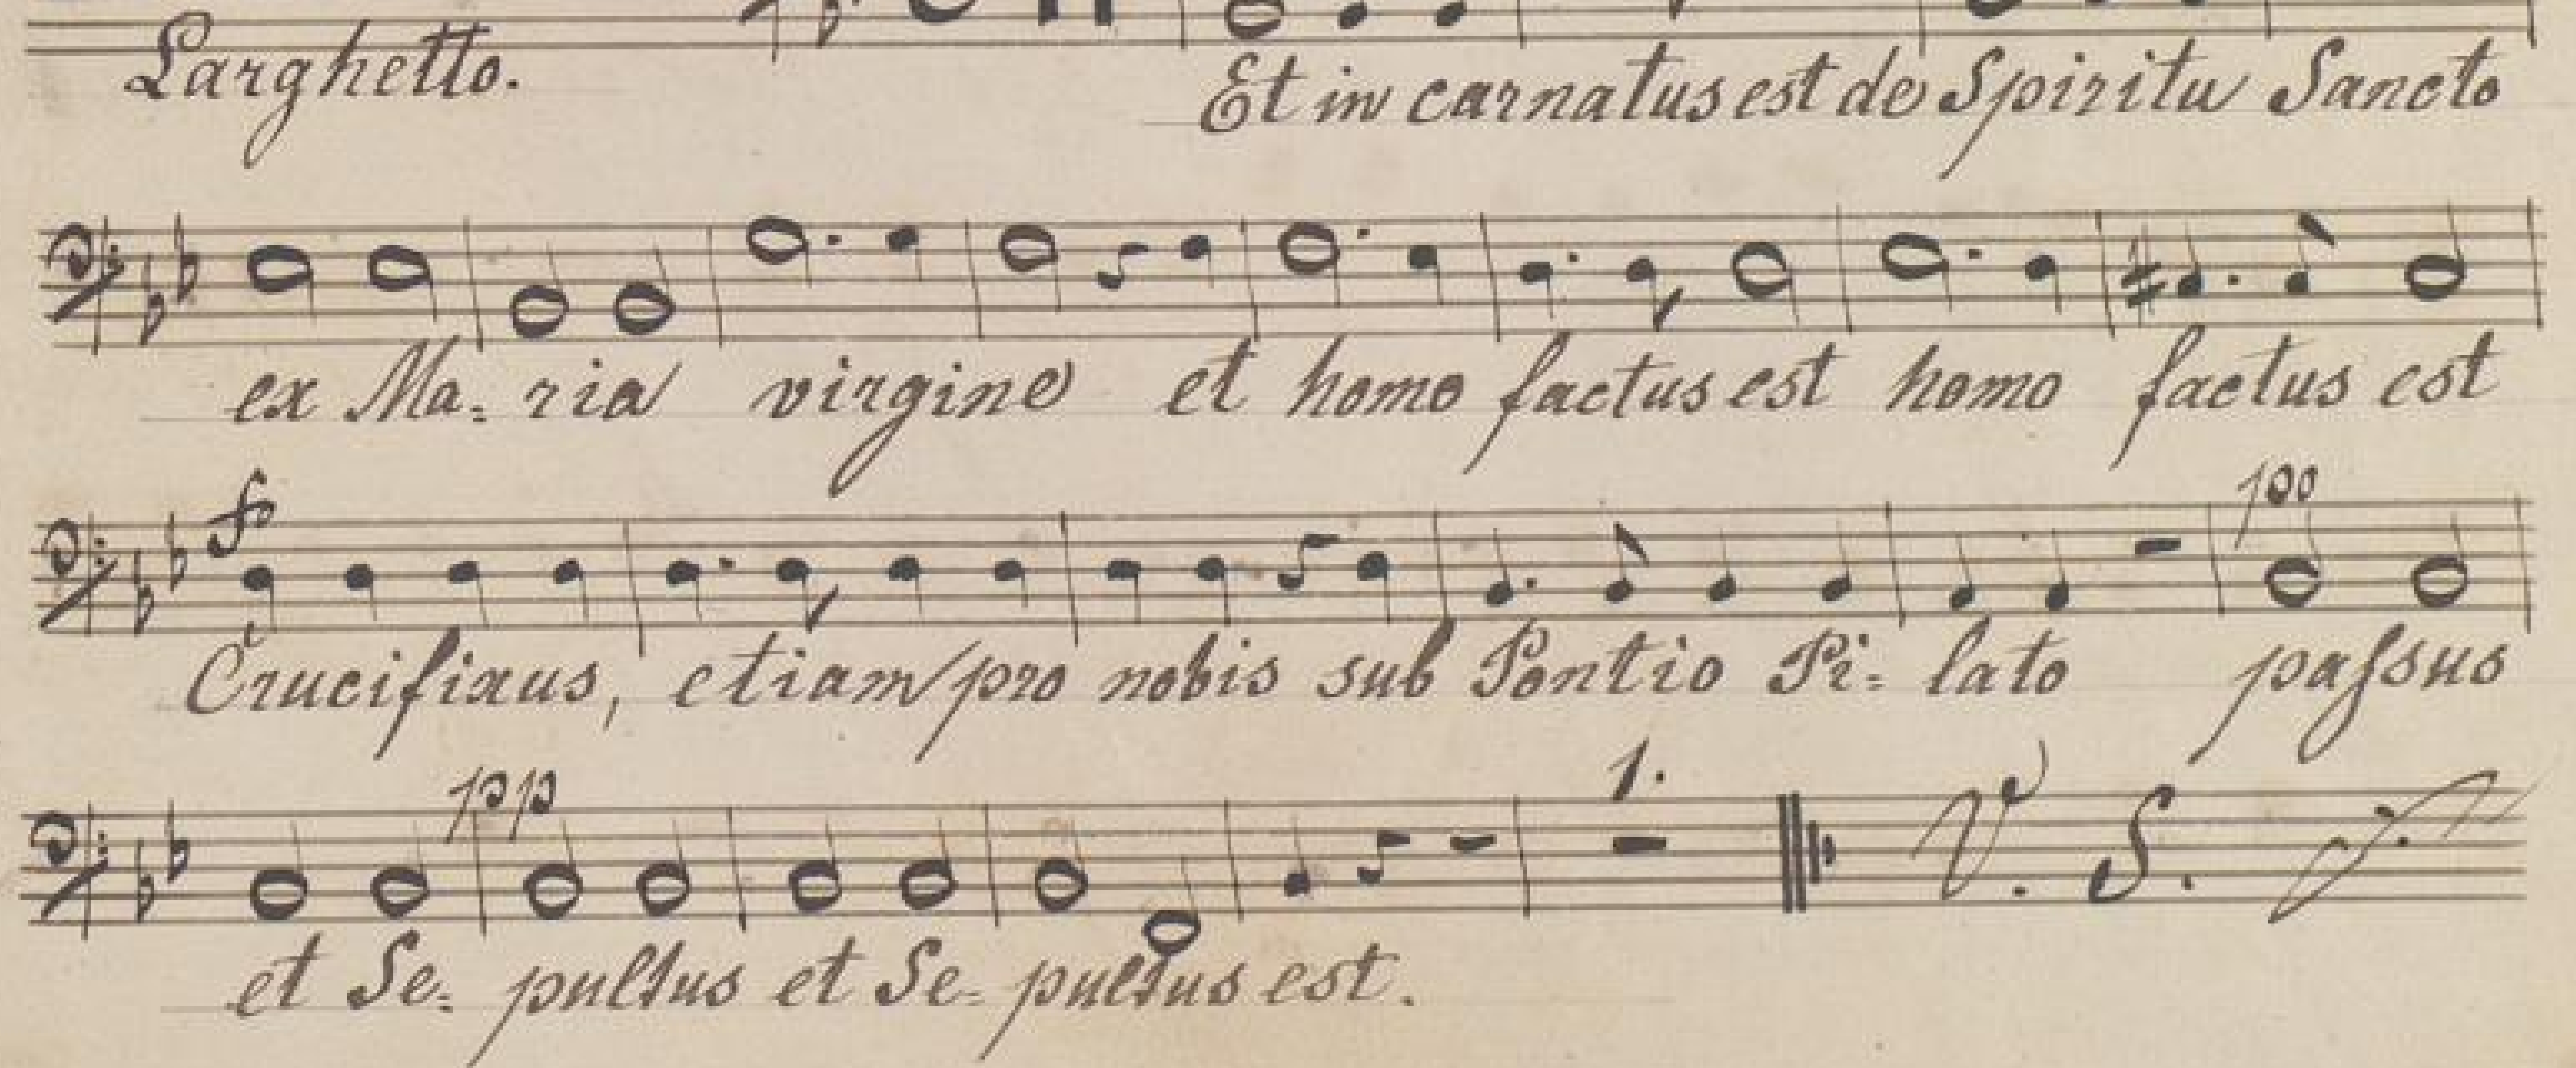 Larghetto. Et in carnatus est de Spiritu Sancto
ex Ma= ria virgine et homo factus est homo factus est
f po
Crucifixus, etiam pro nobis sub Pontio Pi= lato paſsus
pp 1. V. S.
et Se= pultus et Se= pultus est.